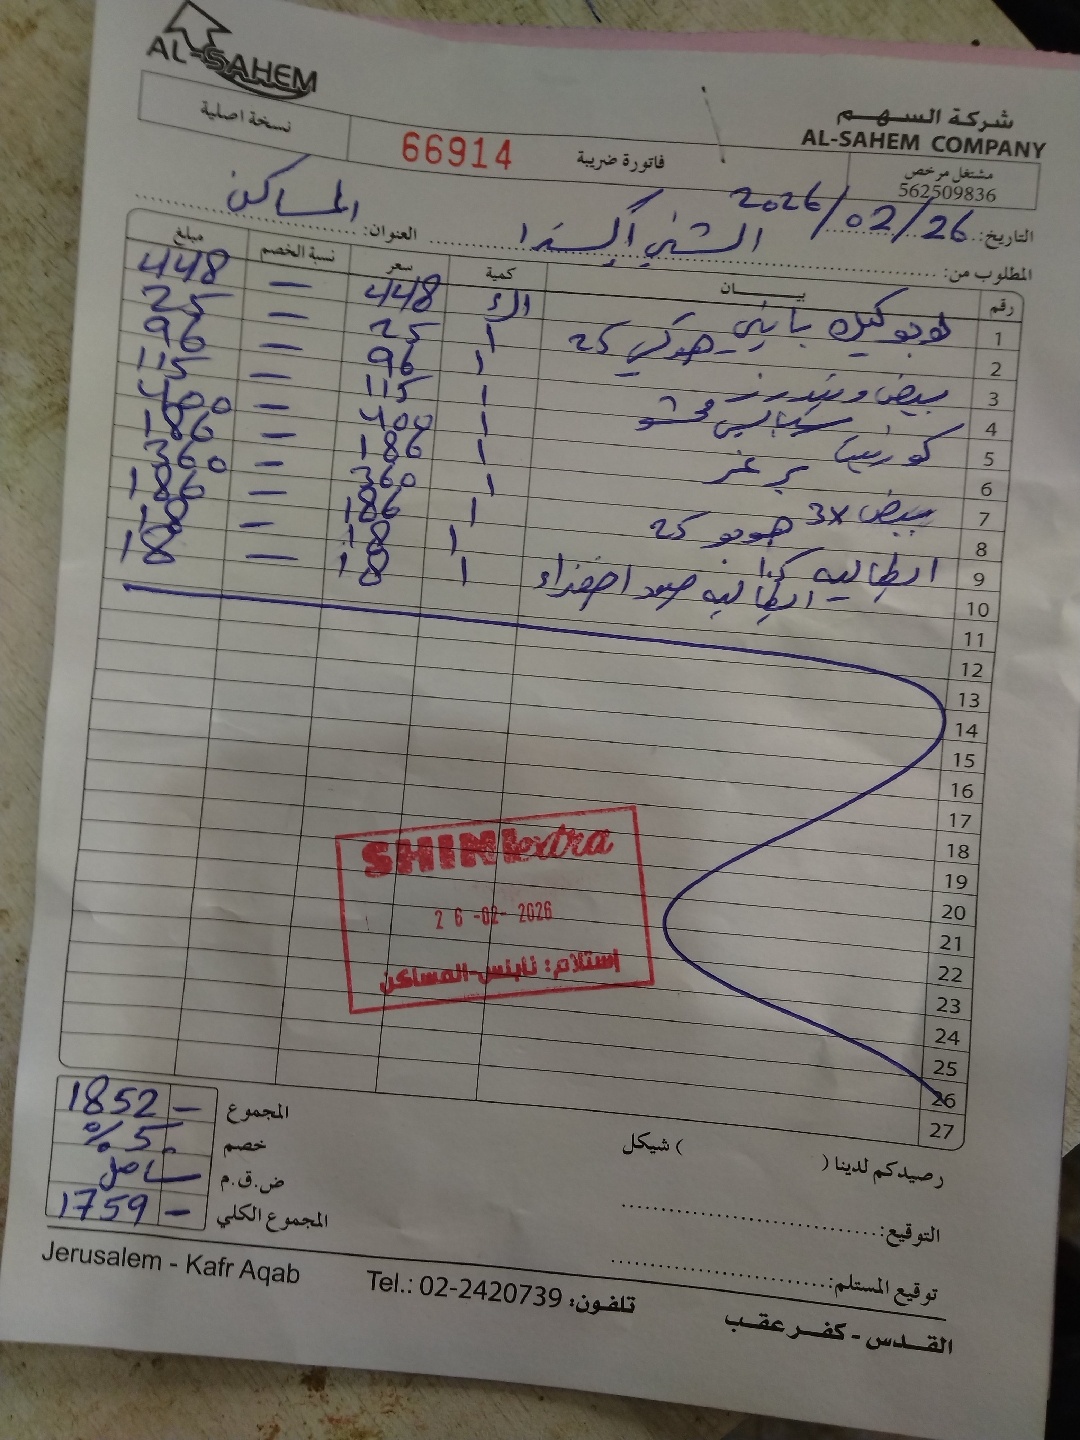 AL-SAHEM
شركة السهم
AL-SAHEM COMPANY
نسخة اصلية
66914
فاتورة ضريبة
مشتغل مرخص
562509836
التاريخ: 2026/02/26
المطلوب من: الشني إكسترا العنوان: المساكن
رقم بيــان كمية سعر نسبة الخصم مبلغ
1 بايني 448 — 448
2 25 1 25 — 25
3 بيض 1 96 — 96
4 محشو 1 115 — 115
5 1 400 — 400
6 برغر 1 186 — 186
7 بيض 3x 1 360 — 360
8 25 1 186 — 186
9 1 18 — 18
10 1 18 — 18
11
12
13
14
15
16
17
18
19
20
21
22
23
24
25
26
27
SHINI extra
26-02-2026
إستلام: نابلس-المساكن
المجموع 1852 —
خصم 5%
ض.ق.م شامل
المجموع الكلي 1759 —
رصيدكم لدينا ( ) شيكل
التوقيع:
توقيع المستلم:
Jerusalem - Kafr Aqab
Tel.: 02-2420739 تلفون:
القدس - كفر عقب